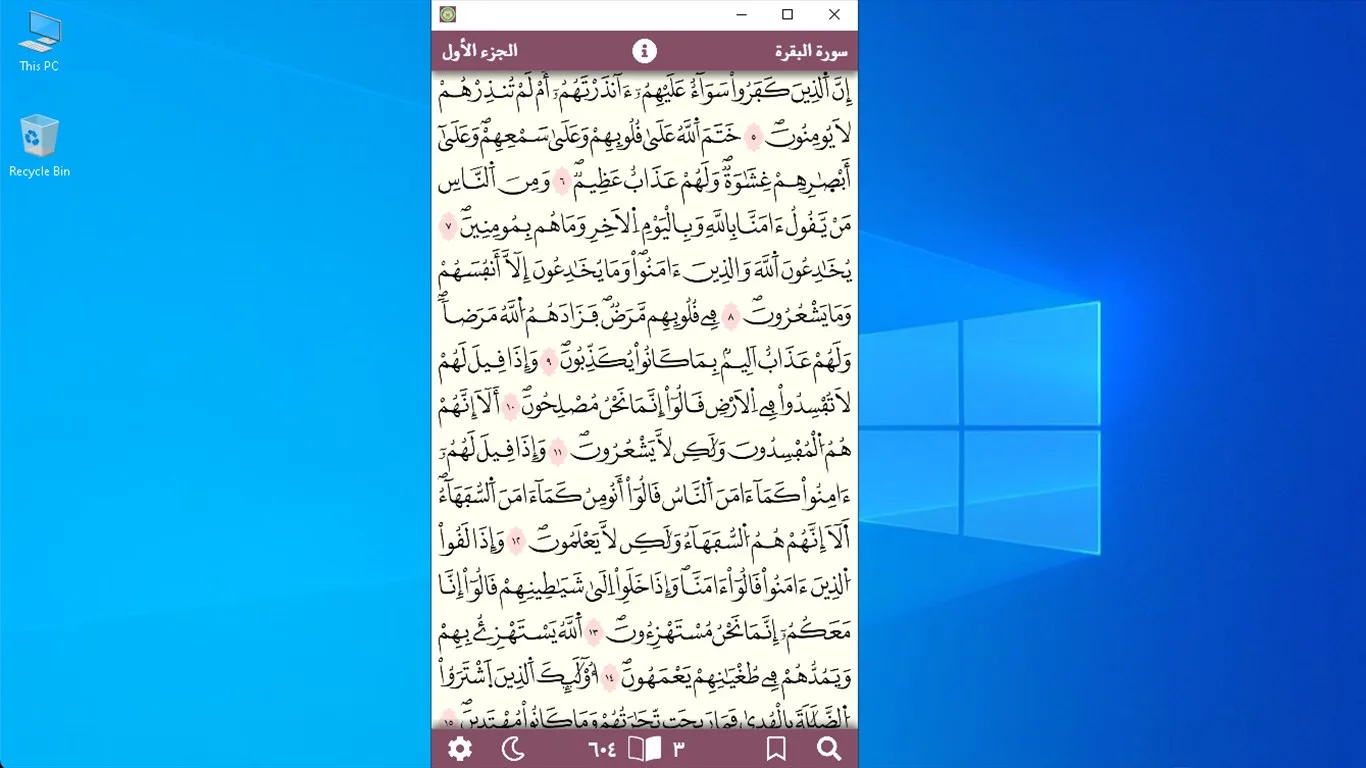 This PC
Recycle Bin
سورة البقرة
الجزء الأول
إِنَّ اَ۬لذِينَ كَفَرُواْ سَوَآءٌ عَلَيْهِمُۥٓ ءَآنذَرْتَهُمُۥٓ أَمْ لَمْ تُنذِرْهُمْ
لَا يُومِنُونَۖ ٥ خَتَمَ اَ۬للَّهُ عَلَىٰ قُلُوبِهِمْ وَعَلَىٰ سَمْعِهِمْۖ وَعَلَىٰٓ
أَبْصٰ۪رِهِمْ غِشَٰوَةٞۖ وَلَهُمْ عَذَابٌ عَظِيمٞۖ ٦ وَمِنَ اَ۬لنَّاسِ
مَنْ يَّقُولُ ءَامَنَّا بِاللَّهِ وَبِالْيَوْمِ اِ۬لَاخِرِ وَمَا هُم بِمُومِنِينَۖ ٧
يُخَٰدِعُونَ اَ۬للَّهَ وَالذِينَ ءَامَنُواْۖ وَمَا يُخَٰدِعُونَ إِلَّآ أَنفُسَهُمْ
وَمَا يَشْعُرُونَۖ ٨ فِے قُلُوبِهِم مَّرَضٞۖ فَزَادَهُمُ اُ۬للَّهُ مَرَضاٗۖ
وَلَهُمْ عَذَابٌ اَلِيمُۢ بِمَا كَانُواْ يُكَذِّبُونَۖ ٩ وَإِذَا قِيلَ لَهُمْ
لَا تُفْسِدُواْ فِے اِ۬لَارْضِ قَالُوٓاْ إِنَّمَا نَحْنُ مُصْلِحُونَۖ ١٠ أَلَآ إِنَّهُمْ
هُمُ اُ۬لْمُفْسِدُونَ وَلَٰكِن لَّا يَشْعُرُونَۖ ١١ وَإِذَا قِيلَ لَهُمُۥٓ
ءَامِنُواْ كَمَآ ءَامَنَ اَ۬لنَّاسُ قَالُوٓاْ أَنُومِنُ كَمَآ ءَامَنَ اَ۬لسُّفَهَآءُۖ
أَلَآ إِنَّهُمْ هُمُ اُ۬لسُّفَهَآءُ وَلَٰكِن لَّا يَعْلَمُونَۖ ١٢ وَإِذَا لَقُواْ
اُ۬لذِينَ ءَامَنُواْ قَالُوٓاْ ءَامَنَّاۖ وَإِذَا خَلَوِاْ اِلَىٰ شَيَٰطِينِهِمْ قَالُوٓاْ إِنَّا
مَعَكُمُۥٓ إِنَّمَا نَحْنُ مُسْتَهْزِءُونَۖ ١٣ اَ۬للَّهُ يَسْتَهْزِۓُ بِهِمْ
وَيَمُدُّهُمْ فِے طُغْيَٰنِهِمْ يَعْمَهُونَۖ ١٤ أُوْلَٰٓئِكَ اَ۬لذِينَ اَ۪شْتَرَوُاْ
اُ۬لضَّلَٰلَةَ بِالْهُدَىٰ فَمَا رَبِحَت تِّجَٰرَتُهُمْ وَمَا كَانُواْ مُهْتَدِينَۖ ١٥
٣ ٦٠٤